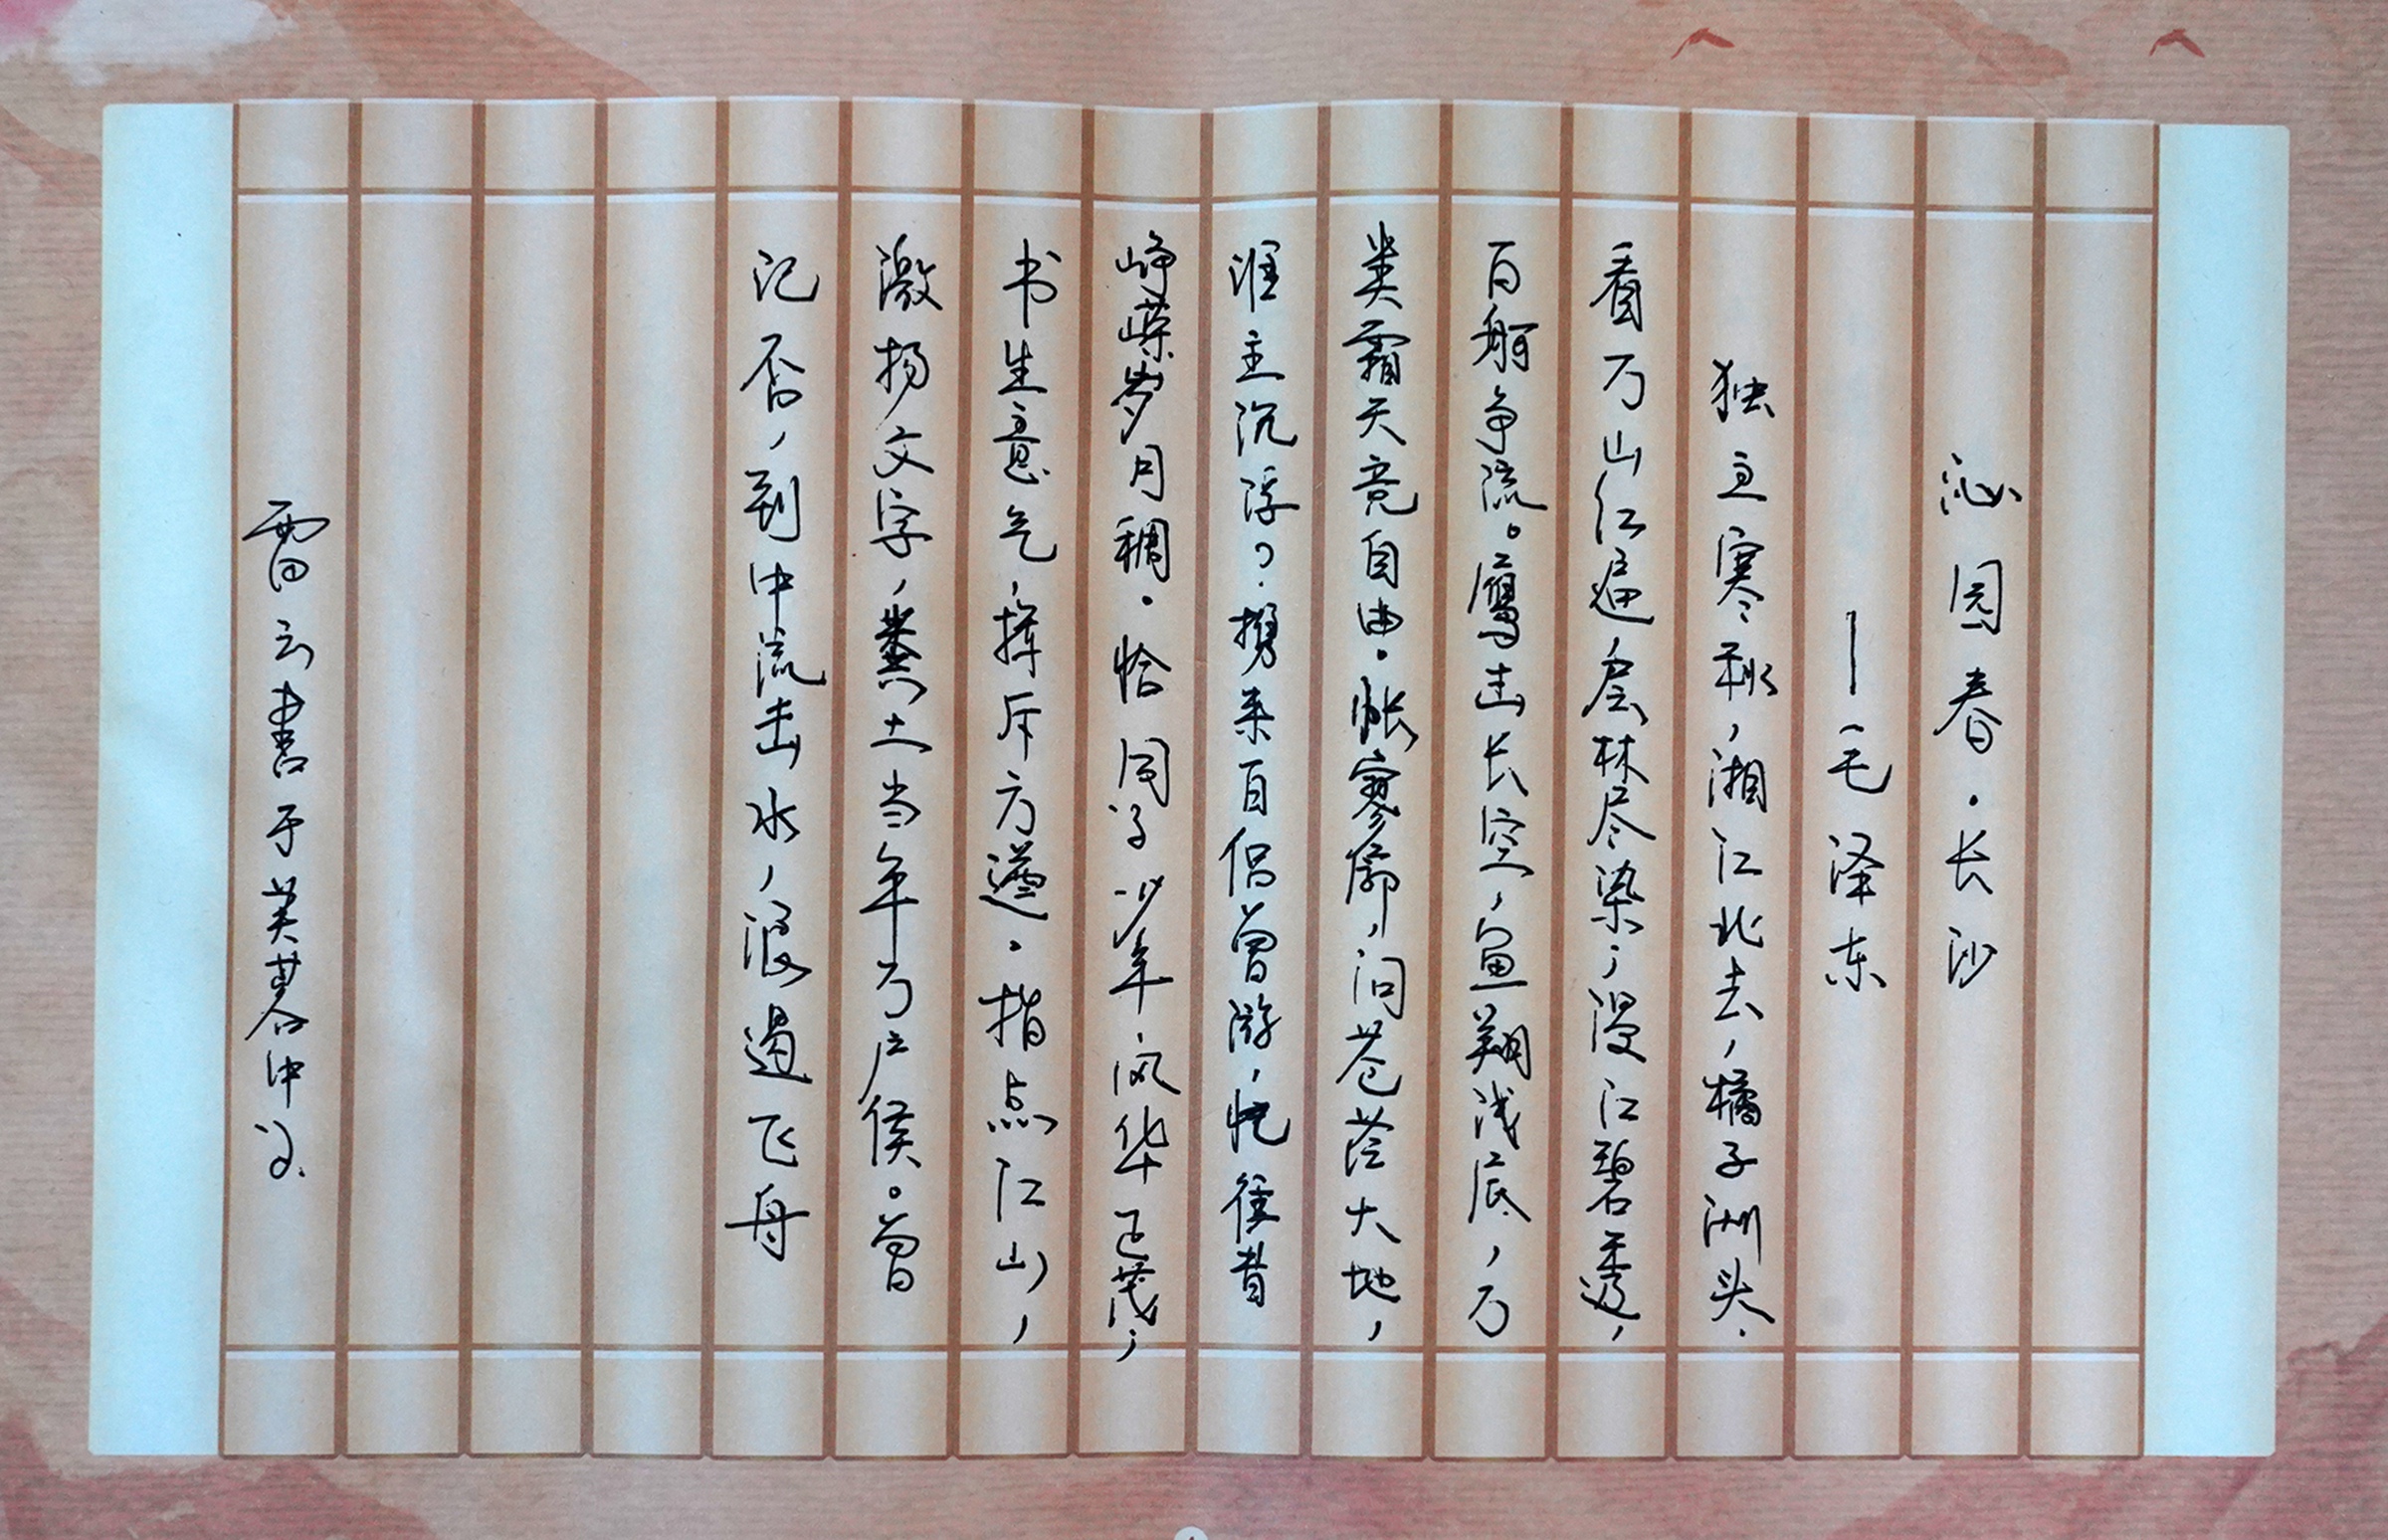 沁园春·长沙
—毛泽东
独立寒秋，湘江北去，橘子洲头.
看万山红遍，层林尽染；漫江碧透，
百舸争流。鹰击长空，鱼翔浅底，万
类霜天竞自由.怅寥廓，问苍茫大地，
谁主沉浮？携来百侣曾游，忆往昔
峥嵘岁月稠.恰同学少年.风华正茂；
书生意气，挥斥方遒.指点江山，
激扬文字，粪土当年万户侯。曾
记否，到中流击水，浪遏飞舟
雷云書于芙蓉中学.